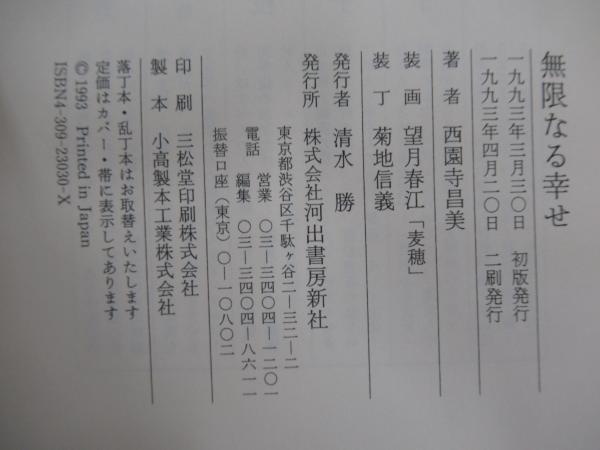 無限なる幸せ
一九九三年三月三〇日 初版発行
一九九三年四月二〇日 二刷発行
著者 西園寺昌美
装画 望月春江「麦穂」
装丁 菊地信義
発行者 清水勝
発行所 株式会社河出書房新社
東京都渋谷区千駄ヶ谷二―三二―二
電話 営業 〇三―三四〇四―一二〇一
編集 〇三―三四〇四―八六一一
振替口座(東京)〇―一〇八〇二
印刷 三松堂印刷株式会社
製本 小高製本工業株式会社
落丁本・乱丁本はお取替えいたします
定価はカバー・帯に表示してあります
©1993 Printed in Japan
ISBN4-309-23030-X